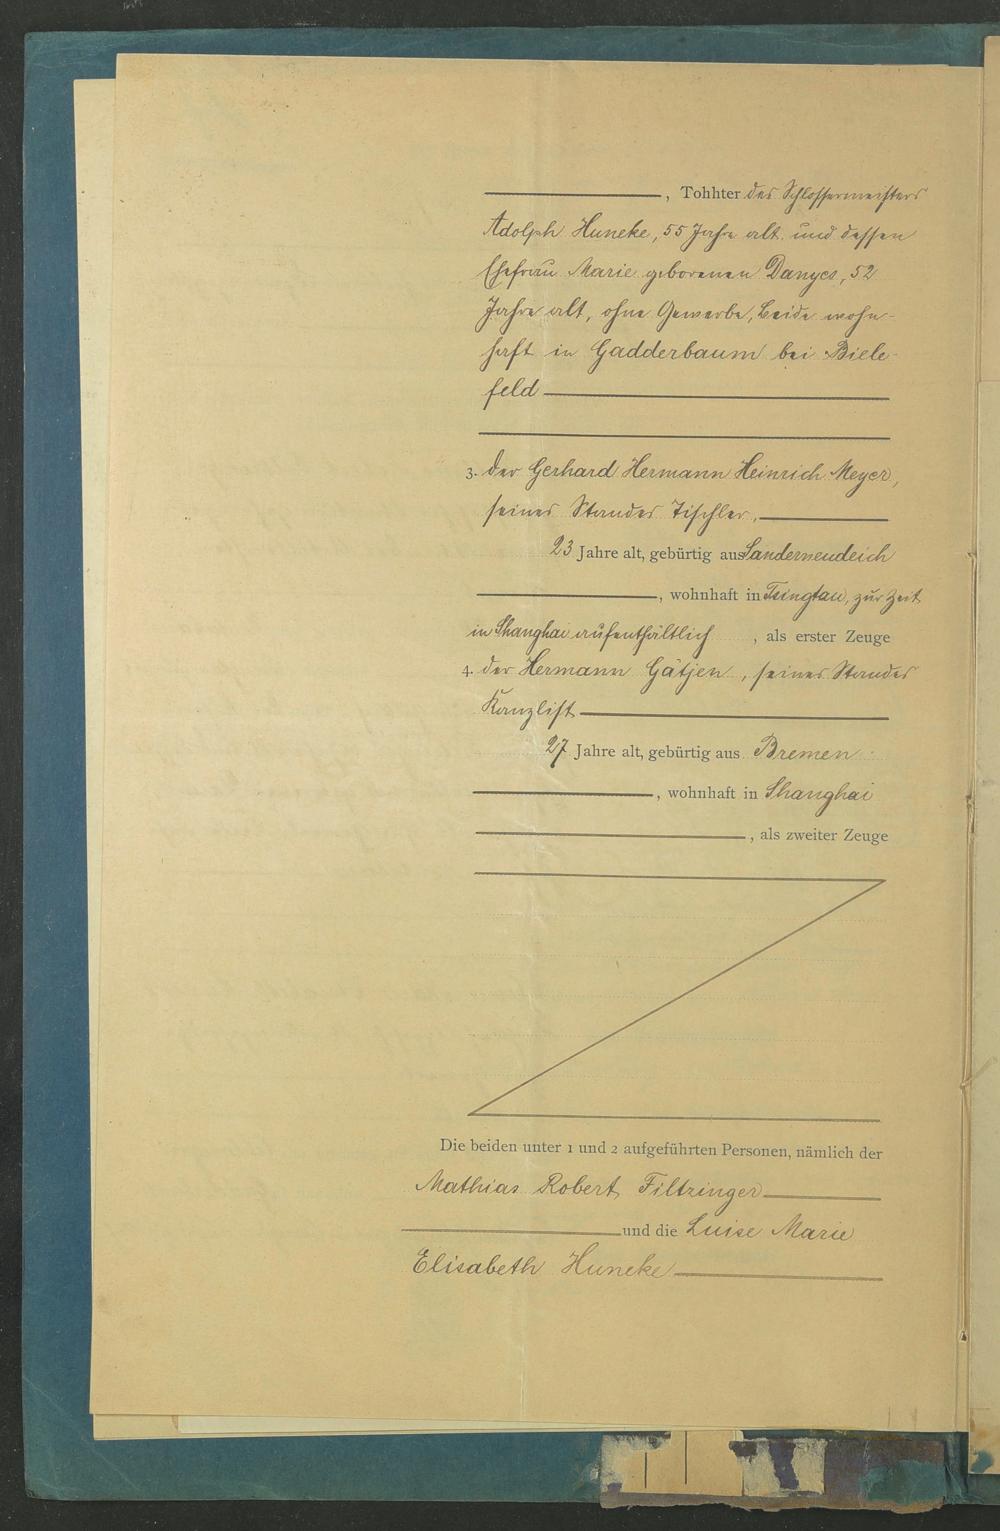 , Tohhter des Schlossermeisters
Adolph Huneke, 55 Jahre alt und dessen
Ehefrau Marie geborenen Danyes, 52
Jahre alt, ohne Gewerbe, beide wohn-
haft in Gadderbaum bei Biele-
feld
3. der Gerhard Hermann Heinrich Meyer,
seines Standes Tischler,
23 Jahre alt, gebürtig aus Sanderneudeich
, wohnhaft in Tsingtau, zur Zeit
in Shanghai aufenthältlich , als erster Zeuge
4. der Hermann Gätjen, seines Standes
Kanzlist
27 Jahre alt, gebürtig aus Bremen
, wohnhaft in Shanghai
, als zweiter Zeuge
Die beiden unter 1 und 2 aufgeführten Personen, nämlich der
Mathias Robert Filtzinger
und die Luise Marie
Elisabeth Huneke